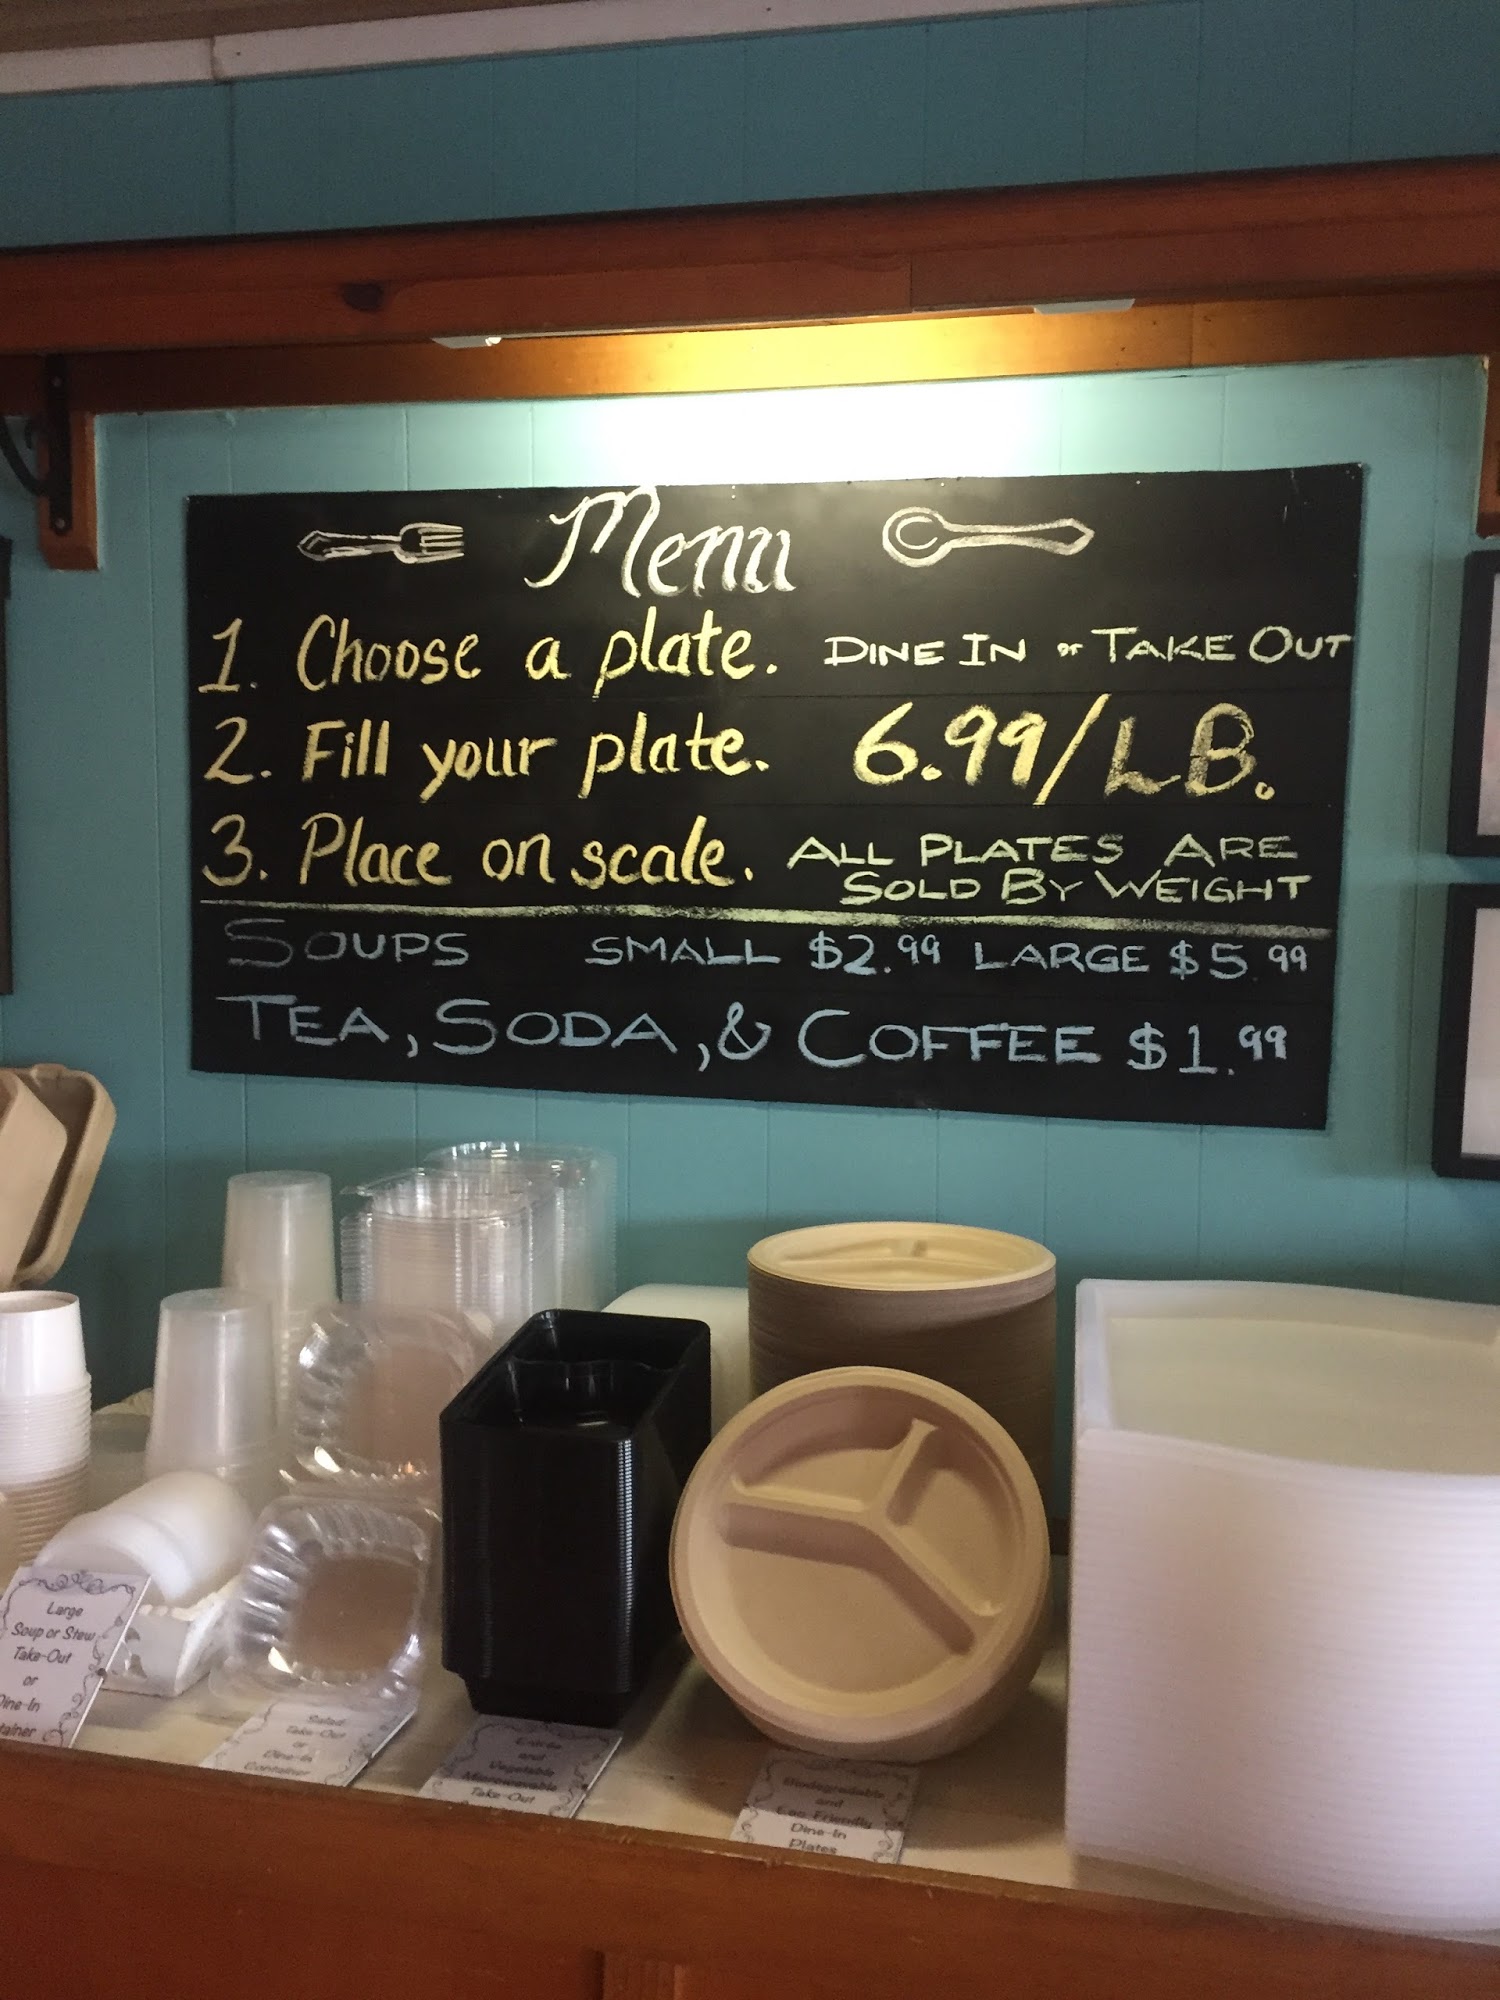 Menu
1. Choose a plate. DINE IN or TAKE OUT
2. Fill your plate. 6.99/LB.
3. Place on scale. ALL PLATES ARE
SOLD BY WEIGHT
SOUPS SMALL $2.99 LARGE $5.99
TEA, SODA, & COFFEE $1.99
Large
Soup or Stew
Take-Out
or
Dine-In
Salad
Take-Out
or
Dine-In
Container
Entrée
and
Vegetable
Microwavable
Take-Out
Biodegradable
and
Eco-Friendly
Dine-In
Plates